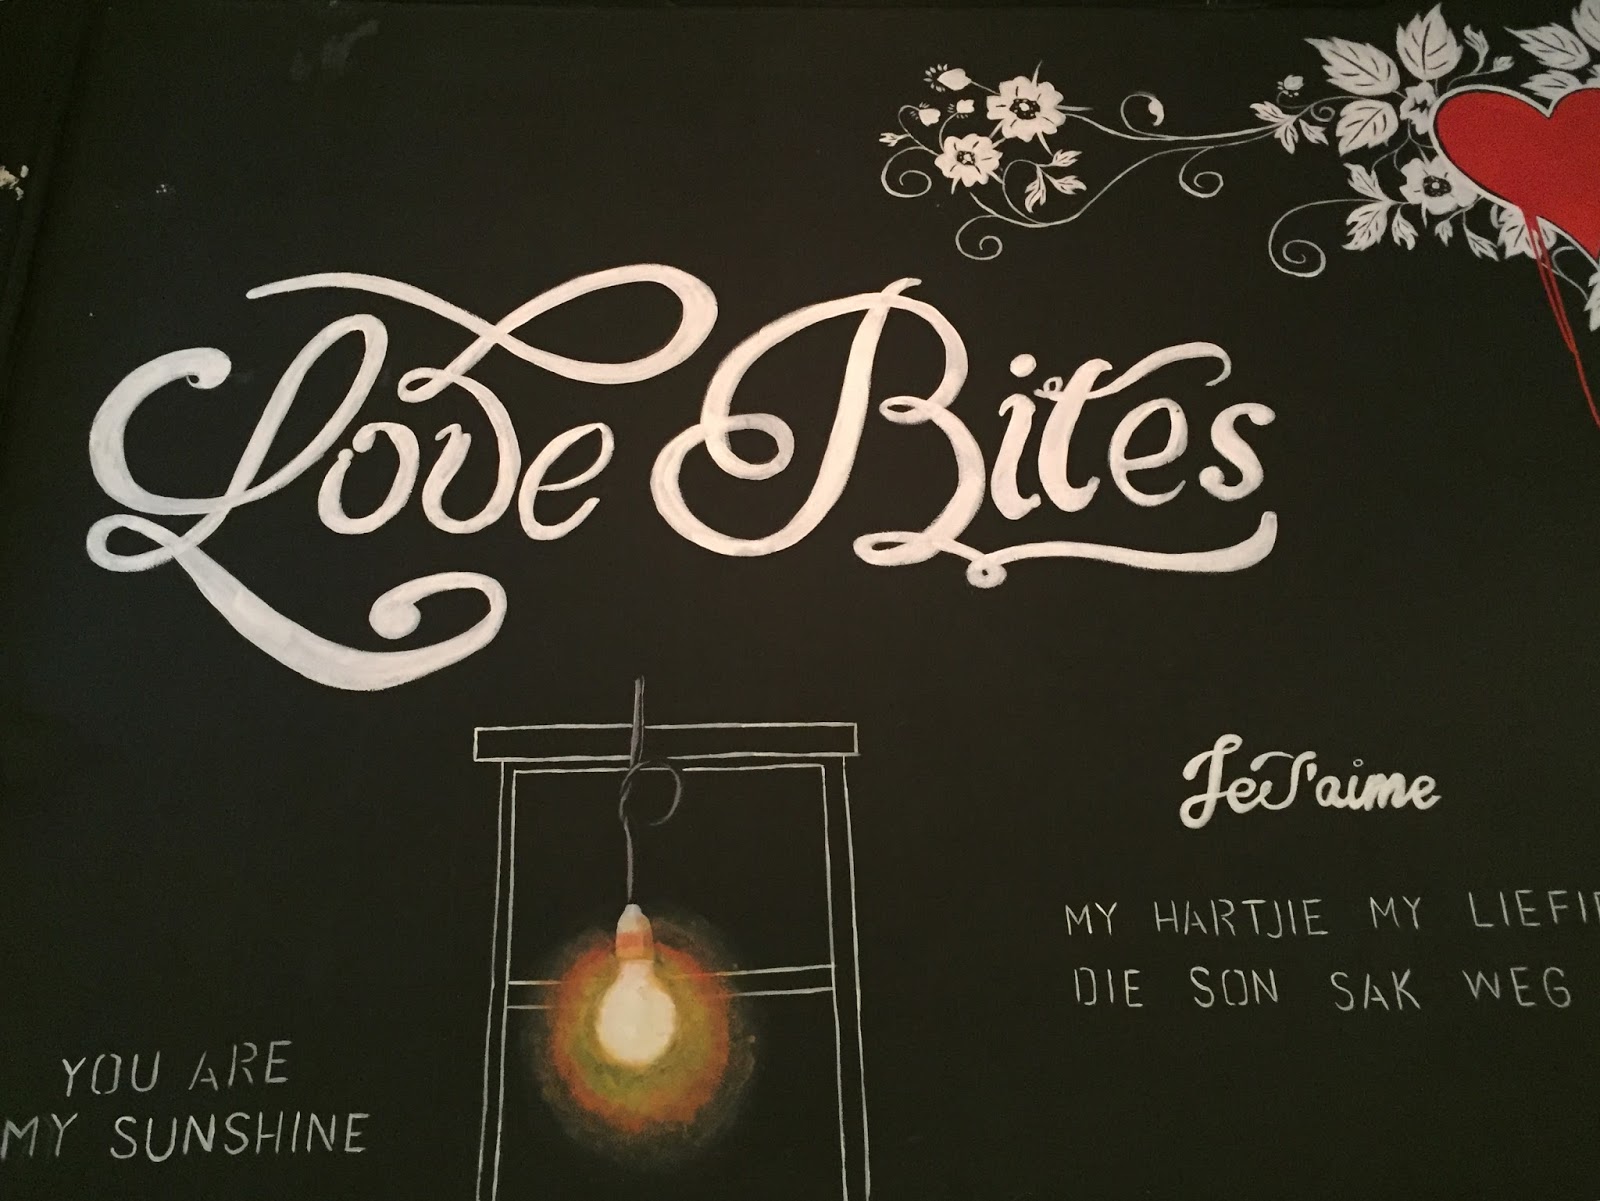 Love Bites
Je T'aime
MY HARTJIE MY
DIE SON SAK WEG
YOU ARE
MY SUNSHINE